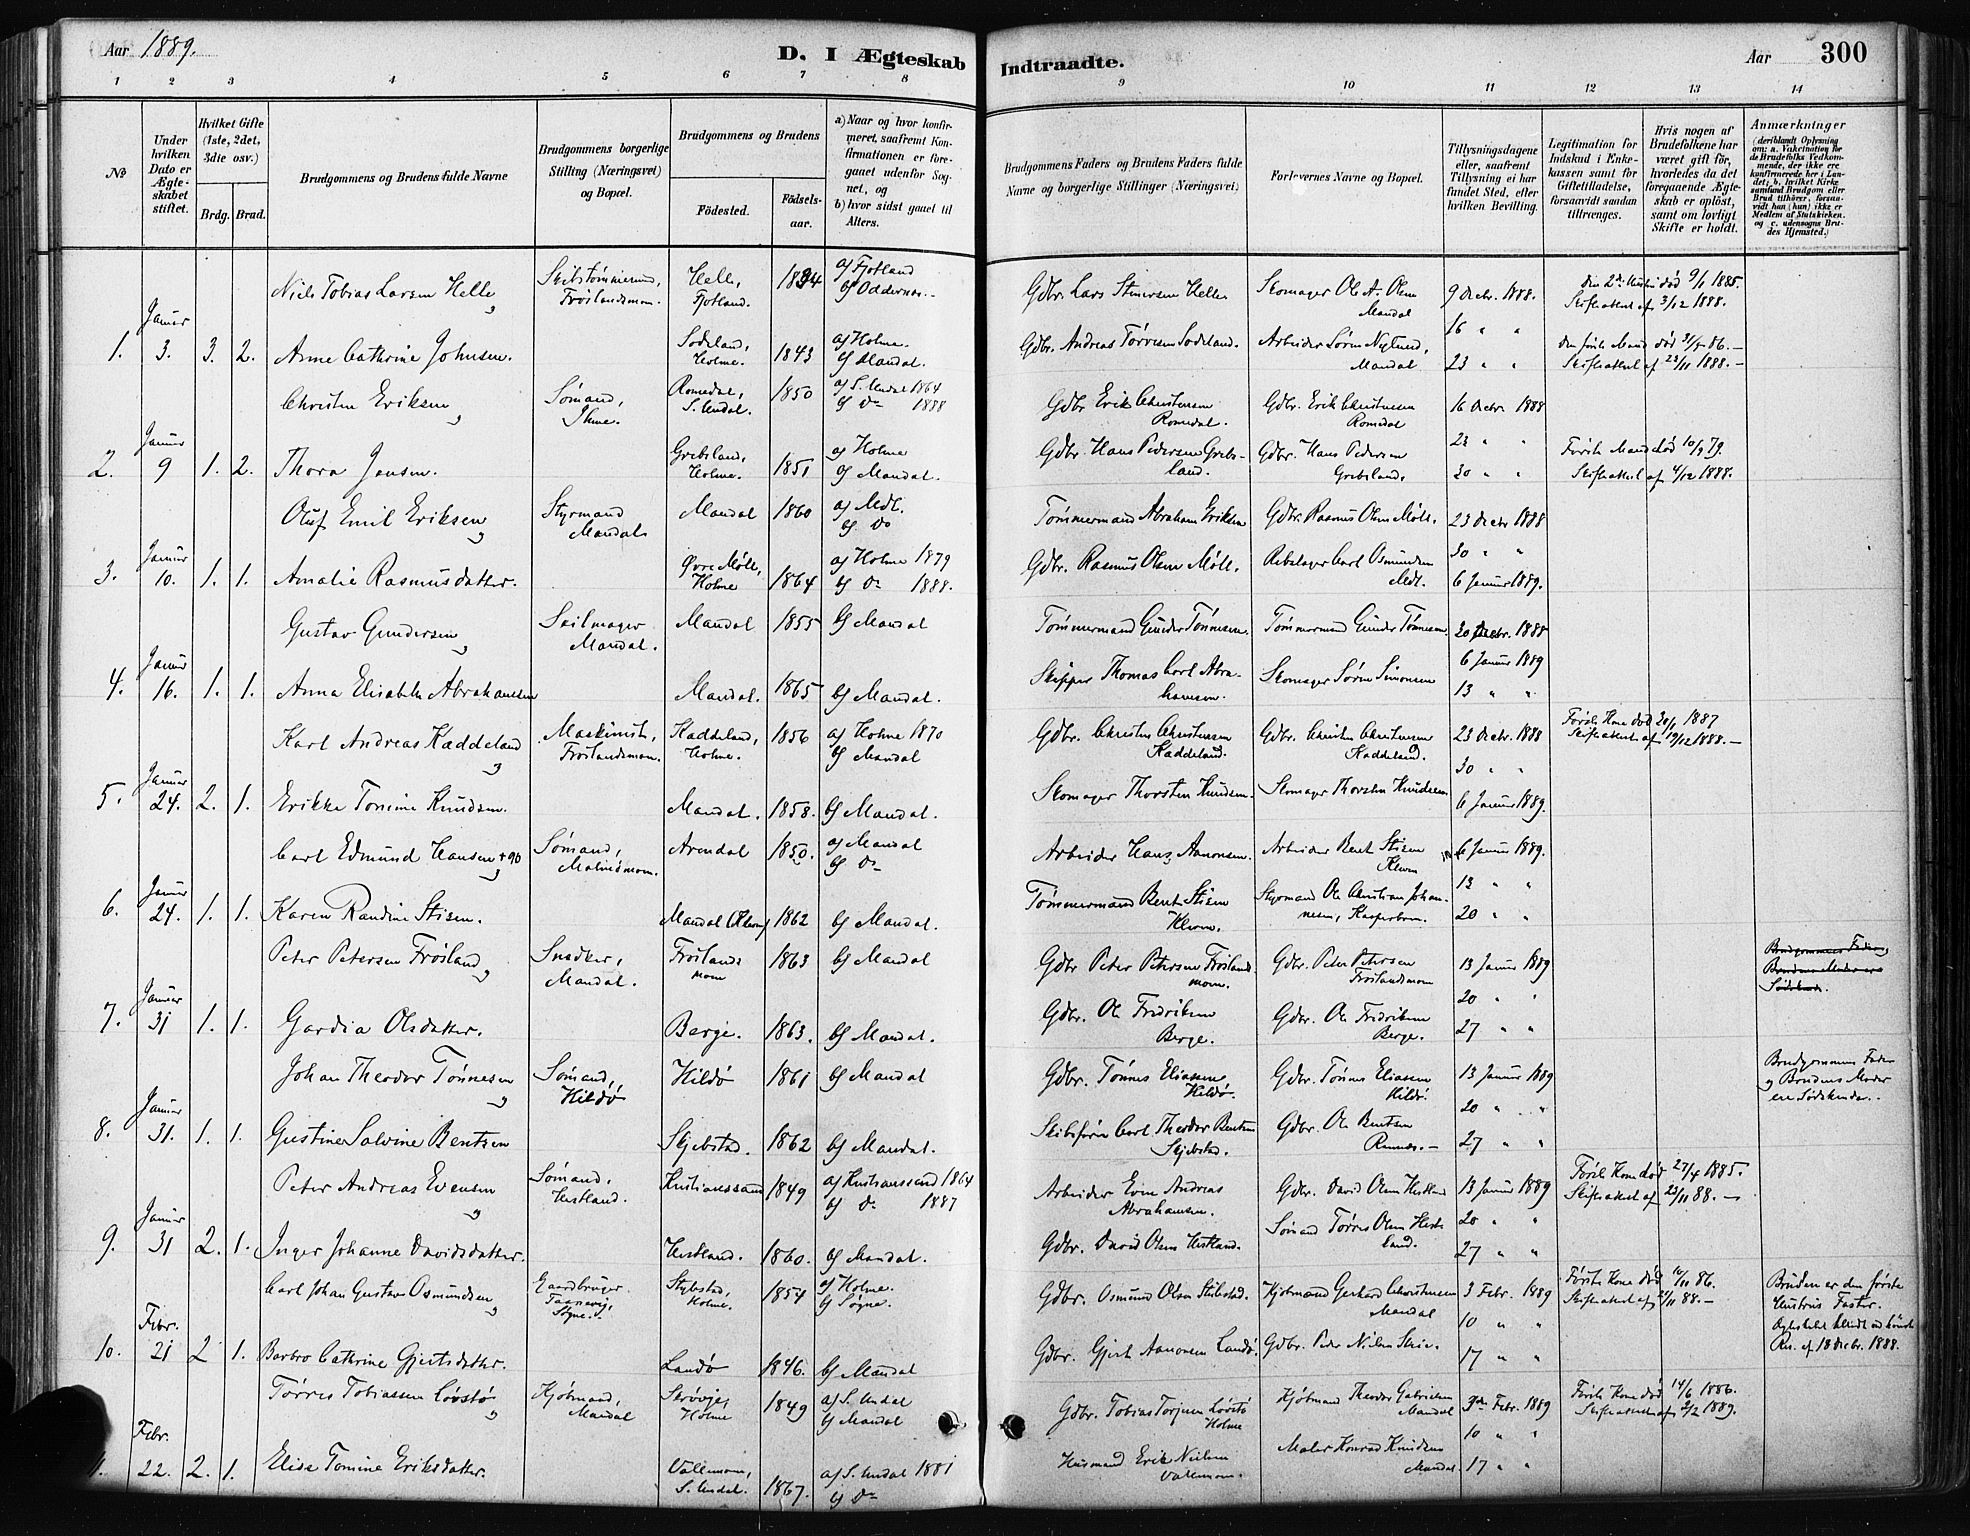 Aar 1889.
D. I Ægteskab
Indtraadte.
Aar 300
1 2 3 4 5 6 7 8 9 10 11 12 13 14
No
Under hvilken Dato er Ægteskabet stiftet.
Hvilket Gifte (1ste, 2det, 3die osv.)
Brdg. Brud.
Brudgommens og Brudens fulde Navne
Brudgommens borgerlige Stilling (Næringsvei) og Bopæl.
Brudgommens og Brudens
Födested.
Födsels-aar.
a) Naar og hvor konfirmeret, saafremt Konfirmationen er foregaaet udenfor Sognet, og
b) hvor sidst gaaet til Alters.
Brudgommens Faders og Brudens Faders fulde Navne og borgerlige Stillinger (Næringsvei)
Forlovernes Navne og Bopæl.
Tillysningsdagene eller, saafremt Tillysning ei har fundet Sted, efter hvilken Bevilling.
Legitimation for Indskud i Enkekassen samt for Giftetilladelse, forsaavidt saadan tiltrænges.
Hvis nogen af Brudefolkene har været gift för, hvorledes da det foregaaende Ægteskab er oplöst, samt om lovligt Skifte er holdt.
Anmærkninger
(deriblandt Oplysning om: a. Vakcination for de Brudefolks Vedkommende, der ikke ere konfirmerede her i Landet; b. hvilket Kirkesamfund Brudgom eller Brud tilhörer, forsaavidt han (hun) ikke er Medlem af Statskirken, og c. udensogns Brudes Hjemsted.)
Niels Tobias Larsen Helle, Skibstømmermd, Frøilandsmoen. Helle, Fjotland. 1834 a) Fjotland b) Oddernes.
Gdbr. Lars Helle Skomager Ole A. Olsen Mandal 9 Decbr. 1888. den 2den Hustru død 9/1 1885. Skifteattest af 3/12 1888.
1. Januar 3. 3. 2. Anne Cathrine Johnsen. Sodeland, Holme. 1843 a) Holme. b) Mandal.
Gdbr. Andreas Sodeland. Arbeider Søren Mandal 16 " " 23 " " den første Mand død Skifteattest af 23/11 1888.
Christen Eriksen, Sømand, Ihme. Romedal, S. Undal. 1850 a) S. Undal 1864 b) Do 1888
Gdbr Erik Christensen Romedal. Gdbr. Erik Christensen Romedal 16 Decbr 1888
2. Januar 9 1. 2. Thora Jensen. Grebsland, Holme. 1851 a) Holme b) Mandal.
Gdbr. Hans Pedersen Grebsland. Gdbr. Hans Pedersen Grebsland. 23 " " 30 " " Første Mand død 10/9 79. Skifteattest af 4/12 1888.
Oluf Emil Eriksen Styrmand Mandal Mandal 1860 a) Mdl. b) Do
Tømmermand Abraham Eriksen Gdbr. Rasmus Olsen Møll. 23 Decbr 1888
3. Januar 10. 1. 1. Amalie Rasmusdatter. Øvre Møll, Holme 1864 a) Holme 1879 b) Do 1888.
Gdbr. Rasmus Olsen Møll. Rebslager Carl Osmundsen Mdl. 30 " " 6 Januar 1889.
Gustav Gundersen Seilmager Mandal. Mandal 1855 b) Mandal
Tømmermand Gunder Tønnesen. Tømmermand Gunder Tønnesen. 30 Decbr. 1888
4. Januar 16. 1. 1. Anna Elisabeth Abrahamsen Mandal. 1865 b) Mandal.
Skipper Thomas Carl Abrahamsen. Skomager Søren Simonsen 6 Januar 1889 13 " "
Karl Andreas Kaddeland Maskinist, Frøilandsmoen. Kaddeland, Holme. 1856 a) Holme 1870 b) Mandal
Gdbr. Christen Christensen Kaddeland. Gdbr. Christen Christensen Kaddeland. 23 Decbr 1888 Første Kone død 20/1 1887 Skifteattest af 19/12 1888.
5. Januar 24. 2. 1. Erikke Tomine Knudsen. Mandal. 1858. b) Mandal.
Skomager Thorsten Knudsen. Skomager Thorsten Knudsen 30 " " 6 Januar 1889.
Carl Edmund Hansen Sømand, Malmømoen. Arendal 1850. a) Mandal b) Do
Arbeider Hans Aanonsen. Arbeider Bent Stisen Kleven 6 Januar 1889.
6. Januar 24. 1. 1. Karen Randine Stisen. Mandal (Kleven) 1862 b) Mandal.
Tømmermand Bent Stisen Kleven. Styrmand Ole Christian Johannesen, 13 " " 20 " "
Peter Petersen Frøiland Snedker, Mandal. Frøilandsmoen 1863 b) Mandal
Gdbr Peter Petersen Frøilandsmoen. Gdbr. Peter Petersen Frøilandsmoen 13 Januar 1889 Brudgommens Fader og Brudens Moder ere Sødskende.
7. Januar 31 1. 1. Gardia Olsdatter. Berge. 1863. b) Mandal.
Gdbr. Ole Fredriksen Berge. Gdbr. Ole Fredriksen Berge. 20 " " 27 " "
Johan Theodor Tønnesen Sømand, Hildø Hildø 1861 b) Mandal
Gdbr. Tønnes Eliassen Hildø. Gdbr. Tønnes Eliassen Hildø. 13 Januar 1889 Brudgommens Fader og Brudens Moder ere Sødskende.
8. Januar 31. 1. 1. Gustine Salvine Bentsen Skjebstad. 1862 b) Mandal.
Skibsfører Carl Theodor Bentsen Skjebstad. Gdbr. Ole Bentsen 20 " " 27 " "
Peter Andreas Evensen Sømand, Hestland. Kristianssand 1849 a) Kristianssand 1864 b) Do 1887
Arbeider Even Andreas Abrahamsen. Gdbr. David Olsen Hestland 13 Januar 1889 Første Kone død 27/4 1885. Skifteattest af 23/11 88.
9. Januar 31 2. 1. Inger Johanne Davidsdatter. Hestland. 1860. b) Mandal.
Gdbr. David Olsen Hestland. Sømand Tørres Olsen Hestland. 20 " " 27 " "
Carl Johan Gustav Osmundsen Gaardbruger Søgne. Holme. 1854 a) Holme. b) Søgne.
Gdbr. Osmund Olsen Kjøbmand Gerhard Christensen Mandal 3 Febr. 1889 Første Kone død 10/11 86. Skifteattest af 88. Bruden er den første Hustrus Faster.
10. Febr. 21 2 1. Barbro Cathrine Gjertsdatter. Landø 1846. b) Mandal
Gdbr. Gjert Aanonsen Landø. Gdbr. Peder Nielsen 10 " " 17 " " Res. af 18 Decbr. 1888.
Tørres Tobiassen Løvstø Kjøbmand, Mandal Holme 1849 a) S. Undal b) Mandal
Gdbr. Tobias Torjusen Løvstø Holme Kjøbmand Theodor Gabrielsen Mandal 3die Febr. 1889 Første Kone død 14/6 1886. Skifteattest af 2/2 1889.
Febr. 22. 2. 1. Elise Tomine Eriksdatter. Vallemoen, S. Undal. 1867. a) S. Undal 1881 b) Do
Husmand Erik Nielsen Vallemoen. Maler Konrad Knudsen Mandal. 10 " " 17 " "